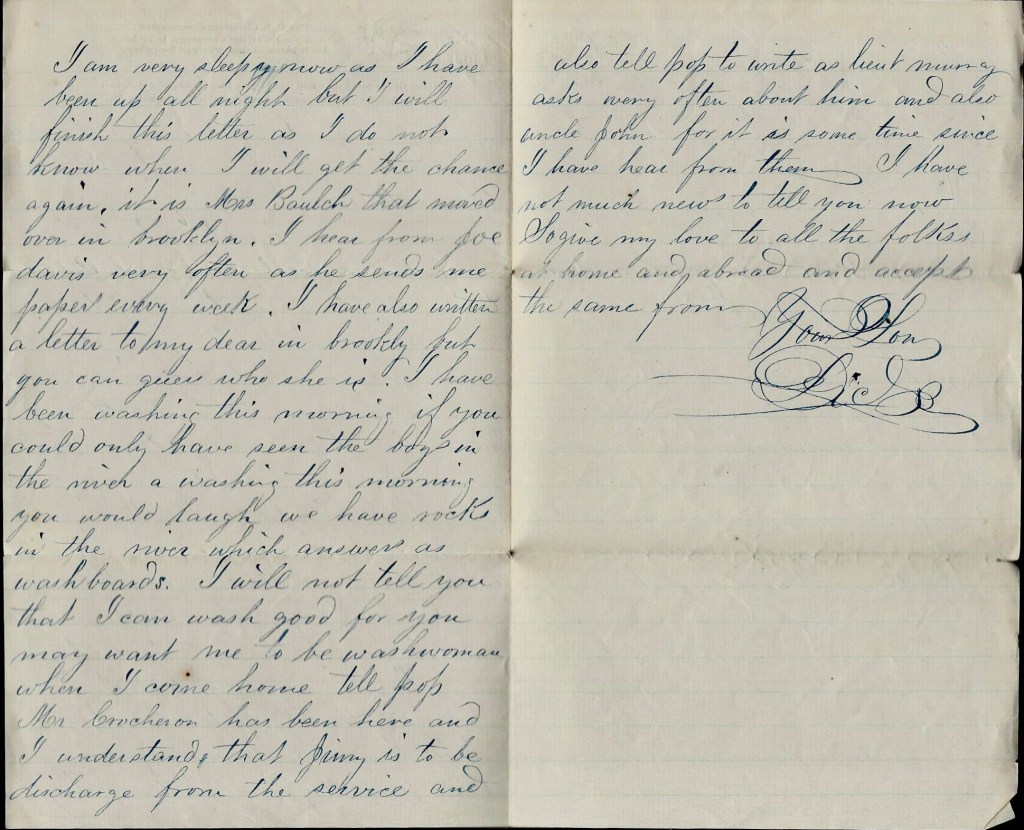 I am very sleepy now as I have
been up all night but I will
finish this letter as I do not
know when I will get the chance
again. it is Mrs Baulch that moved
over in brooklyn. I hear from Joe
davis very often as he sends me
paper every week. I have also written
a letter to my dear in brookly but
you can guess who she is. I have
been washing this morning if you
could only have seen the boys in
the river a washing this morning
you would laugh we have rocks
in the river which answers as
washboards. I will not tell you
that I can wash good for you
may want me to be washwoman
when I come home tell pop
Mr Crocheron has been here and
I understand, that Jimy is to be
discharge from the service and
also tell pop to write as lieut murray
asks very often about him and also
uncle John for it is some time since
I have hear from them I have
not much news to tell you now
So give my love to all the folks
at home and abroad and accept
the same from
Your Son